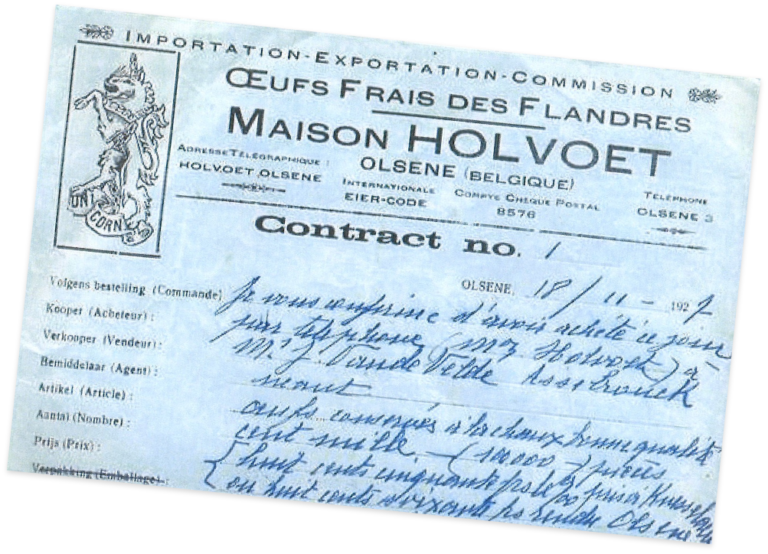 IMPORTATION-EXPORTATION-COMMISSION
ŒUFS FRAIS DES FLANDRES
MAISON HOLVOET
OLSENE (BELGIQUE)
ADRESSE TÉLÉGRAPHIQUE :
HOLVOET OLSENE
INTERNATIONALE
EIER-CODE
COMPTE CHEQUE POSTAL
8576
TÉLÉPHONE
OLSENE 3
UNICORNE
Contract no. 1
OLSENE, 18/11-1927
Volgens bestelling (Commande) Je vous confirme d'avoir acheté ce jour
Kooper (Acheteur) : par téléphone (Mez Holvoet) à
Verkooper (Vendeur) : Mr J. VandeVelde Assebrouck
Bemiddelaar (Agent) : néant
Artikel (Article) : œufs conservés à la chaux bonne qualité
Aantal (Nombre) : cent mille – (100000 –) pièces
Prijs (Prix) : huit cent cinquante
Verpakking (Emballage) : ou huit cents soixante rendu Olsene